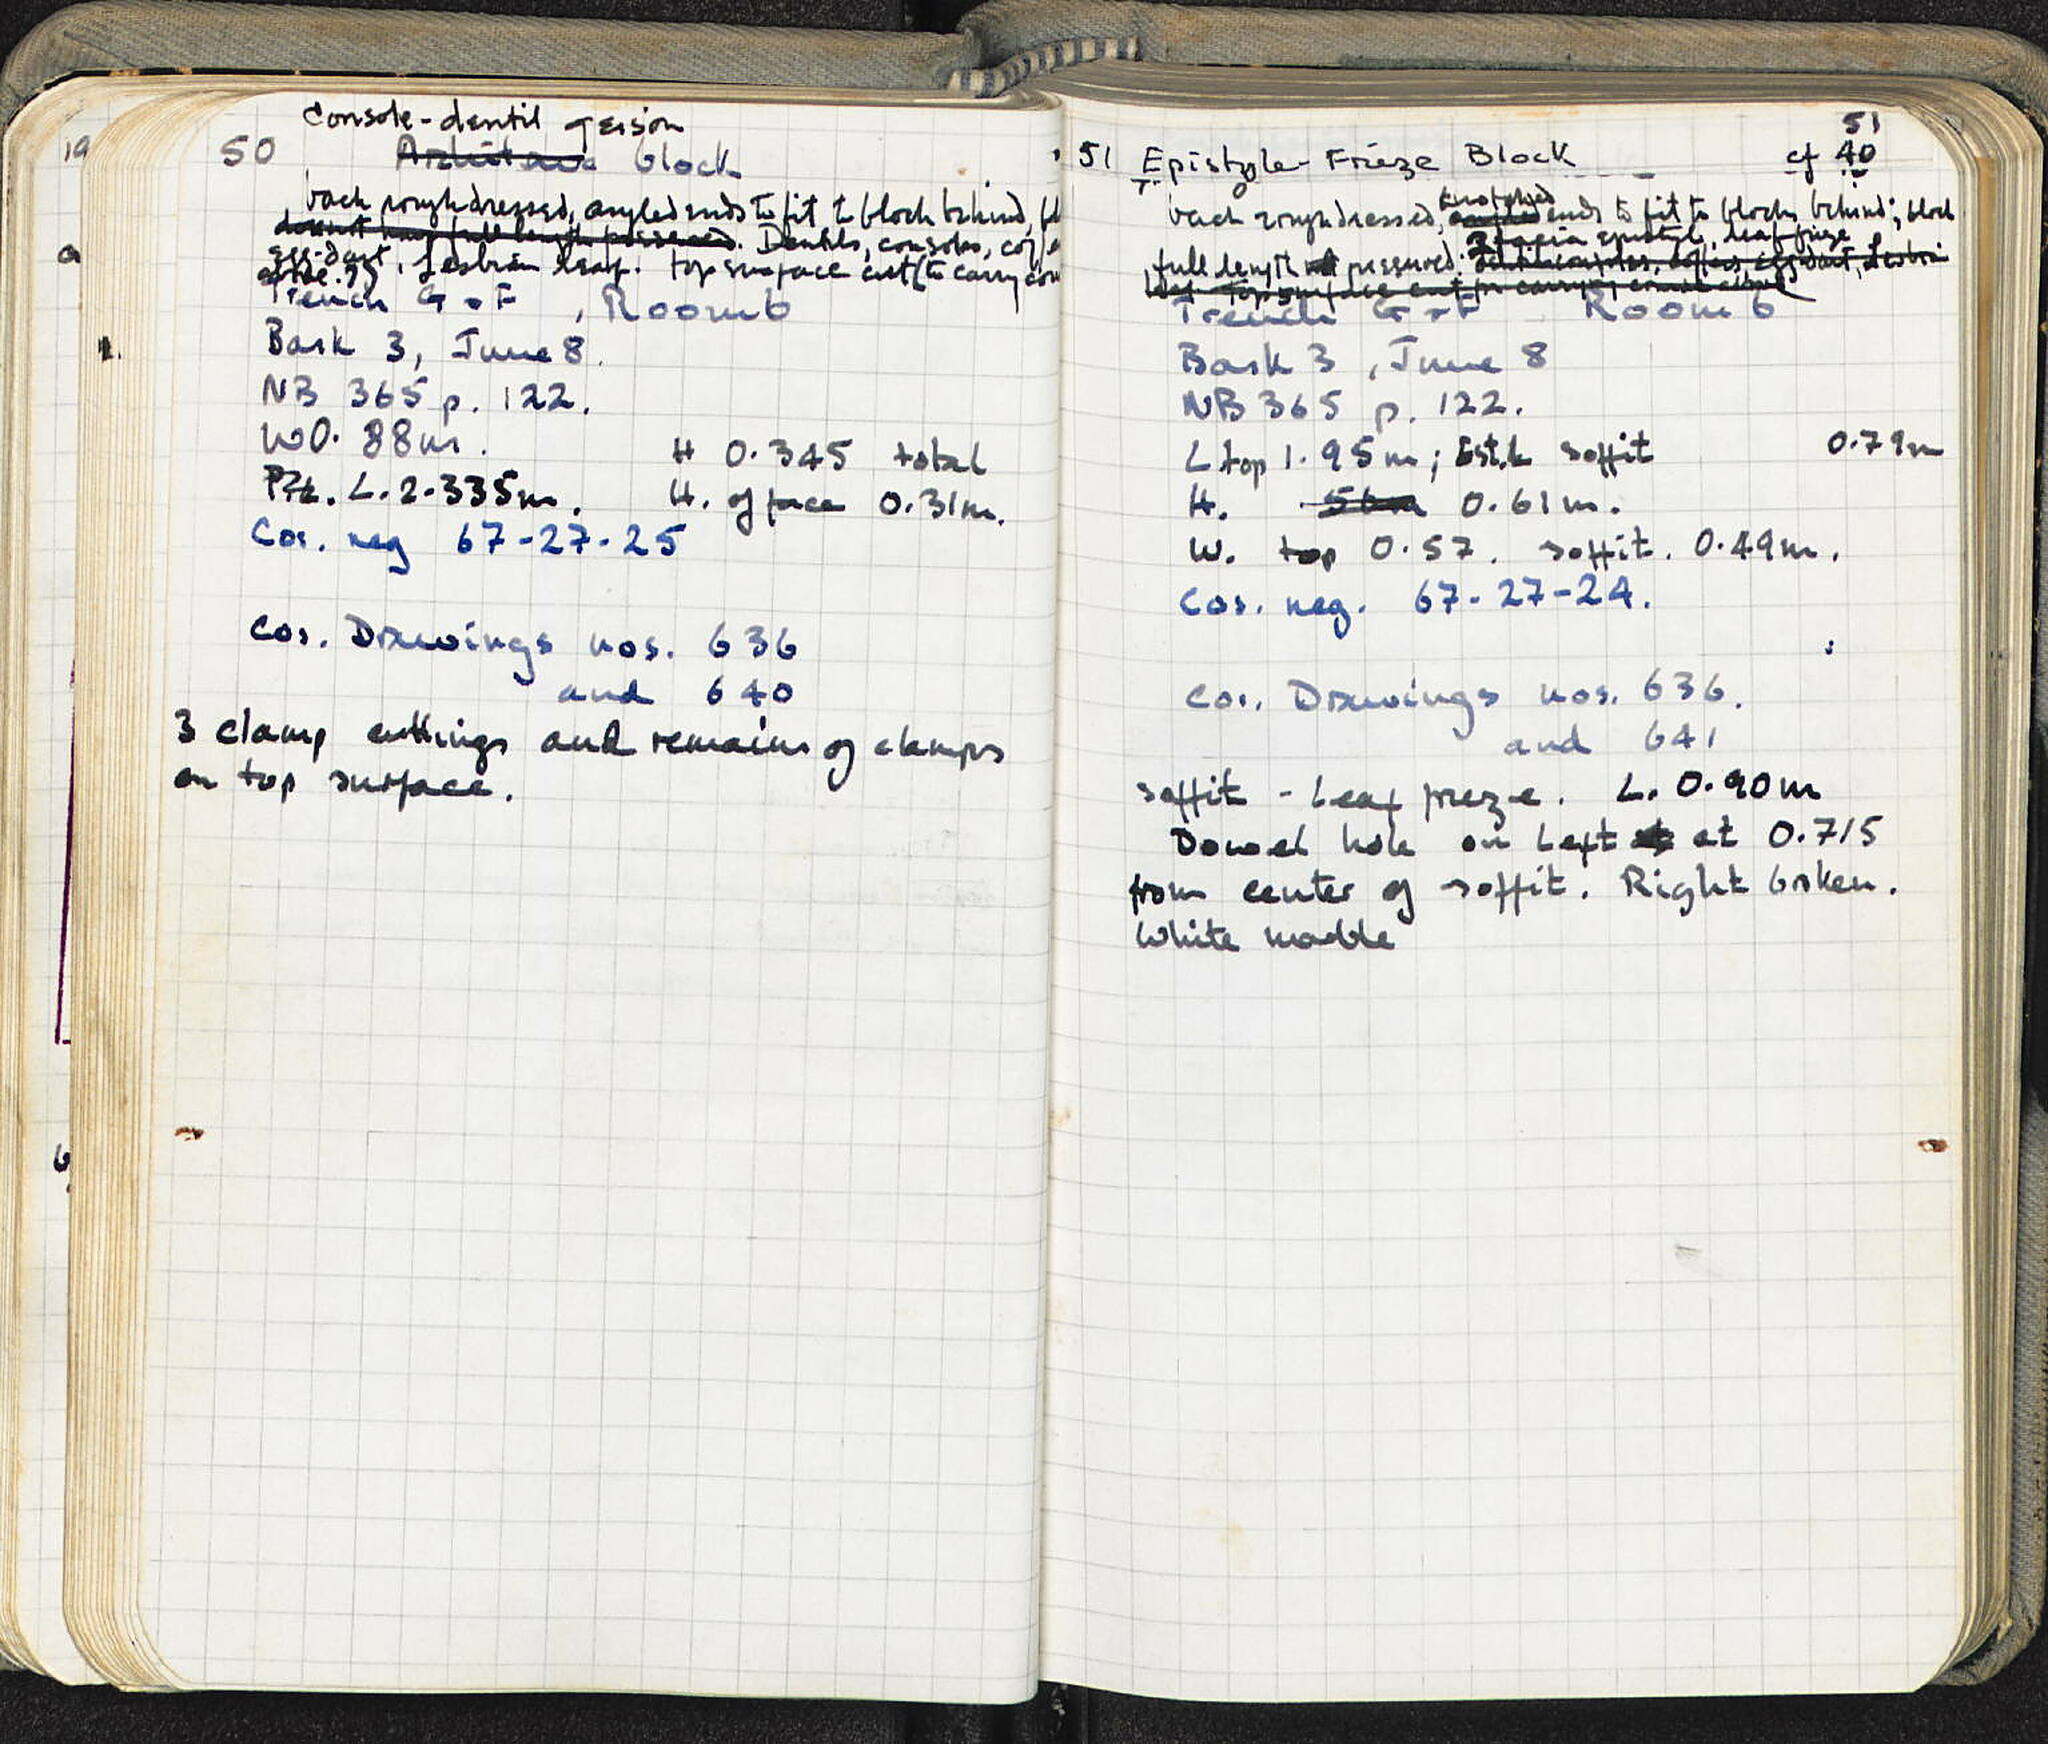 Console-dentil geison
50 Architrave block
back roughdressed, angled ends to fit to block behind,
doesn't have full length preserved. Dentils, consoles, coffe
egg-dart, Lesbian leaf. top surface cut (to carry corn
Trench G + F, Room 6
Bask 3, June 8.
NB 365 p. 122.
W 0.88m. H 0.345 total
L. 2.335m. H. of face 0.31m.
Cor. neg 67-27-25
Cor. Drawings nos. 636
and 640
3 clamp cuttings and remains of clamps
on top surface.
51
51 Epistyle-Frieze Block cf 40
back roughdressed, ends to fit to blocks behind; block
3 fascia epistyle, leaf frieze
full length preserved: dentil consoles, coffers, egg-dart, Lesbian
leaf. Top surface cut for carrying
Trench G + F Room 6
Bask 3, June 8
NB 365 p. 122.
L top 1.95m; Est. L soffit 0.79m
H. 0.61m.
W. top 0.57. soffit. 0.49m.
Cor. neg. 67-27-24.
Cor. Drawings nos. 636.
and 641
soffit - Leaf frieze. L. 0.90m
Dowel hole on Left at 0.715
from center of soffit. Right broken.
White marble
19
a